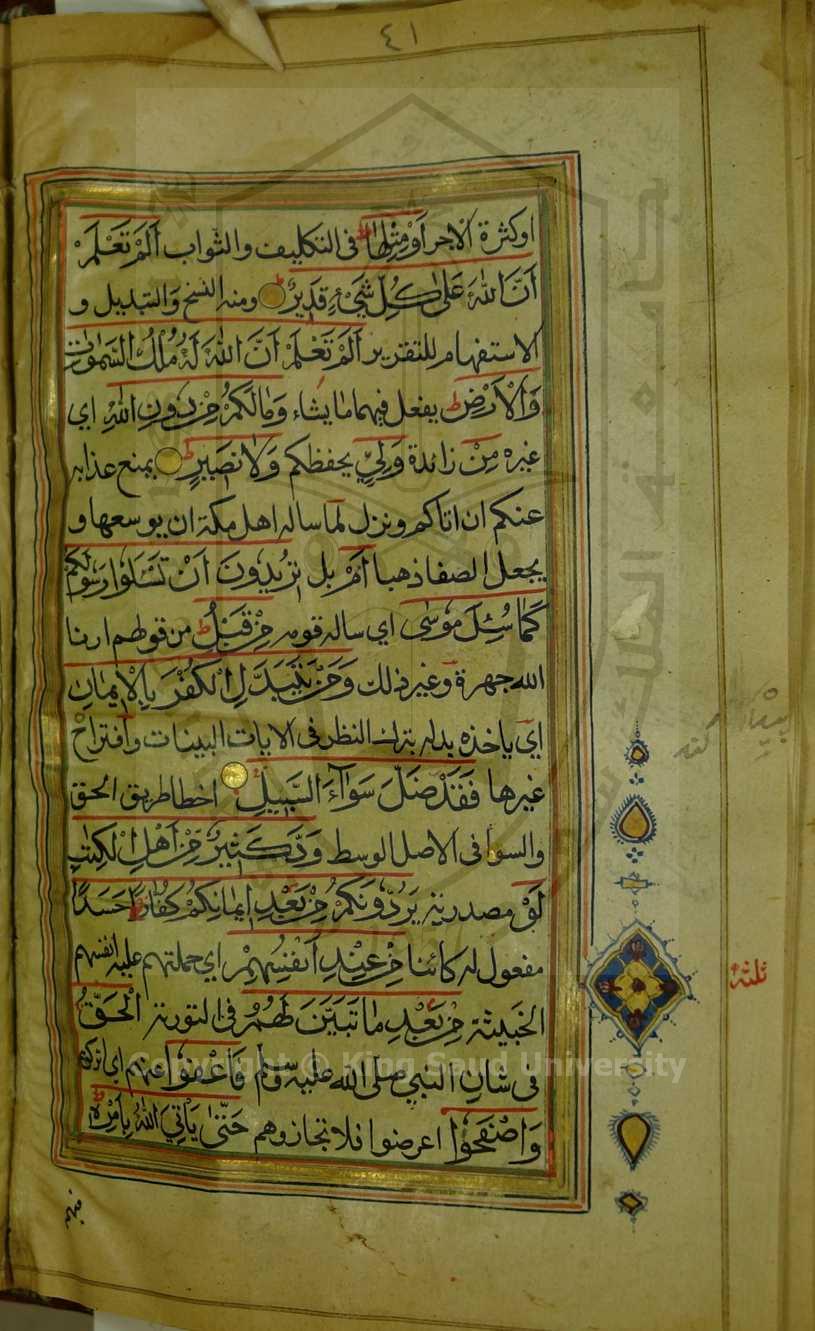 ٤١
اوكثرة الاجر أَوْ مِثْلِهَا فى التكليف والثواب أَلَمْ تَعْلَمْ
أَنَّ اللَّهَ عَلَىٰ كُلِّ شَىْءٍ قَدِيرٌ ومنه النسخ والتبديل و
الاستفهام للتقرير أَلَمْ تَعْلَمْ أَنَّ اللَّهَ لَهُ مُلْكُ السَّمٰوٰتِ
وَالْأَرْضِ يفعل فيهما ما يشاء وَمَا لَكُمْ مِنْ دُونِ اللَّهِ اى
غيره مِنْ زائدة وَلِيٍّ يحفظكم وَلَا نَصِيرٍ يمنع عذابه
عنكم ان اتاكم ونزل لما ساله اهل مكة ان يوسعها و
يجعل الصفا ذهبا أَمْ بل تُرِيدُونَ أَنْ تَسْـَٔلُوا رَسُولَكُمْ
كَمَا سُئِلَ مُوسَى اي ساله قومه مِنْ قَبْلُ من قولهم ارنا
الله جهرة وغير ذلك وَمَنْ يَتَبَدَّلِ الْكُفْرَ بِالْإِيمَانِ
اي ياخذه بدله بترك النظر فى الايات البينات واقتراح
غيرها فَقَدْ ضَلَّ سَوَآءَ السَّبِيلِ اخطا طريق الحق
والسوا فى الاصل الوسط وَدَّ كَثِيرٌ مِنْ أَهْلِ الْكِتٰبِ
لَوْ مصدرية يَرُدُّونَكُمْ مِنْ بَعْدِ إِيمَانِكُمْ كُفَّارًا حَسَدًا
مفعول له كائنا مِنْ عِنْدِ أَنْفُسِهِمْ اي حملتهم عليه انفسهم
الخبيثة مِنْ بَعْدِ مَا تَبَيَّنَ لَهُمُ فى التورية الْحَقُّ
فى شان النبي صلى الله عليه وسلم فَاعْفُوا عنهم اى اتركوهم
وَاصْفَحُوا اعرضوا فلا تجازوهم حَتَّىٰ يَأْتِيَ اللَّهُ بِأَمْرِهِ
فيهم
ثلثة
كند
جامعة الملك سعود
Copyright © King Saud University